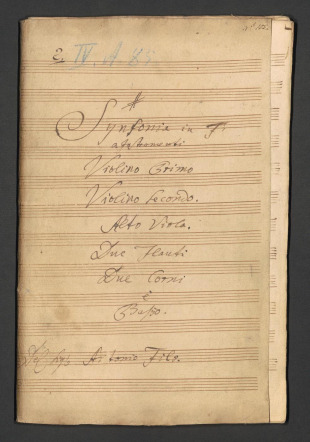 IV. A. 85
Synfonia in F.
a 6 stromenti
Violino Primo
Violino Secondo.
Alto Viola.
Due Flauti
Due Corni
è
Basso.
Antonio Filz.